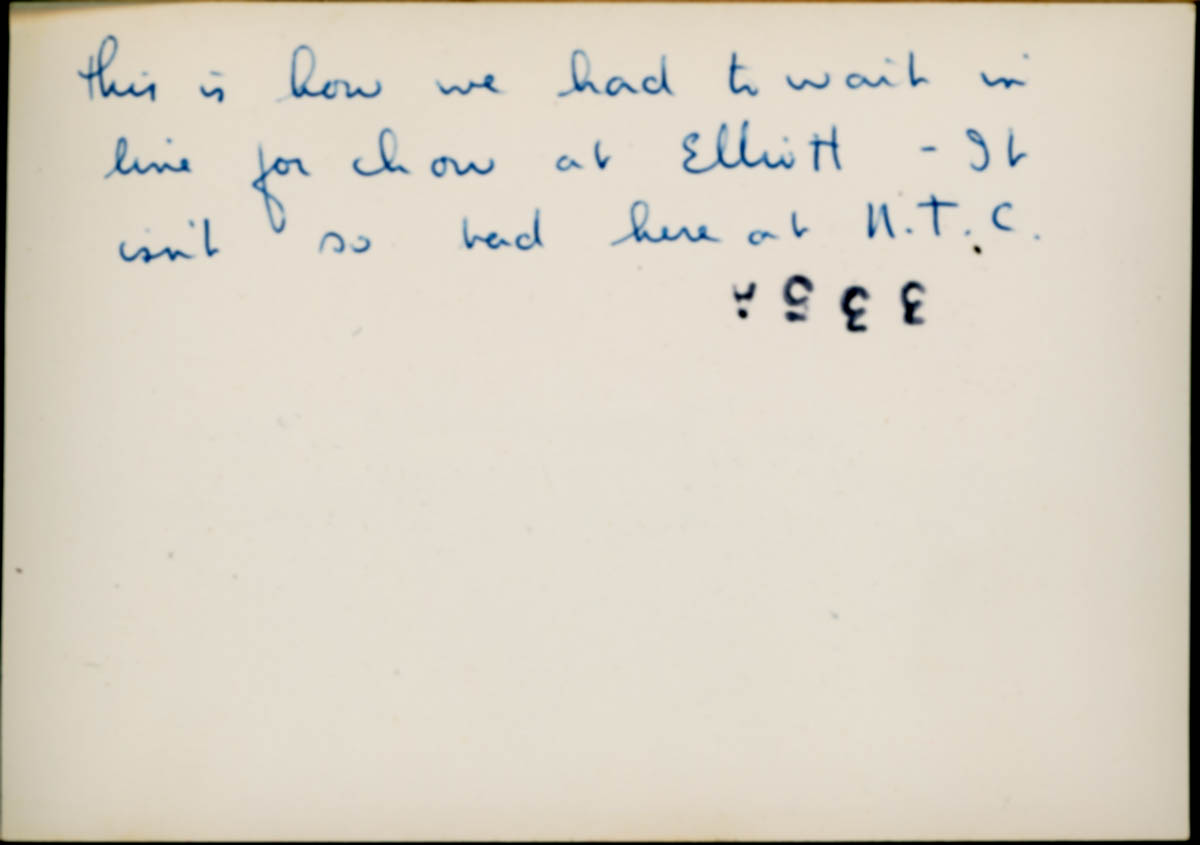 this is how we had to wait in
line for chow at Elliott - It
isn't so bad here at N.T.C.